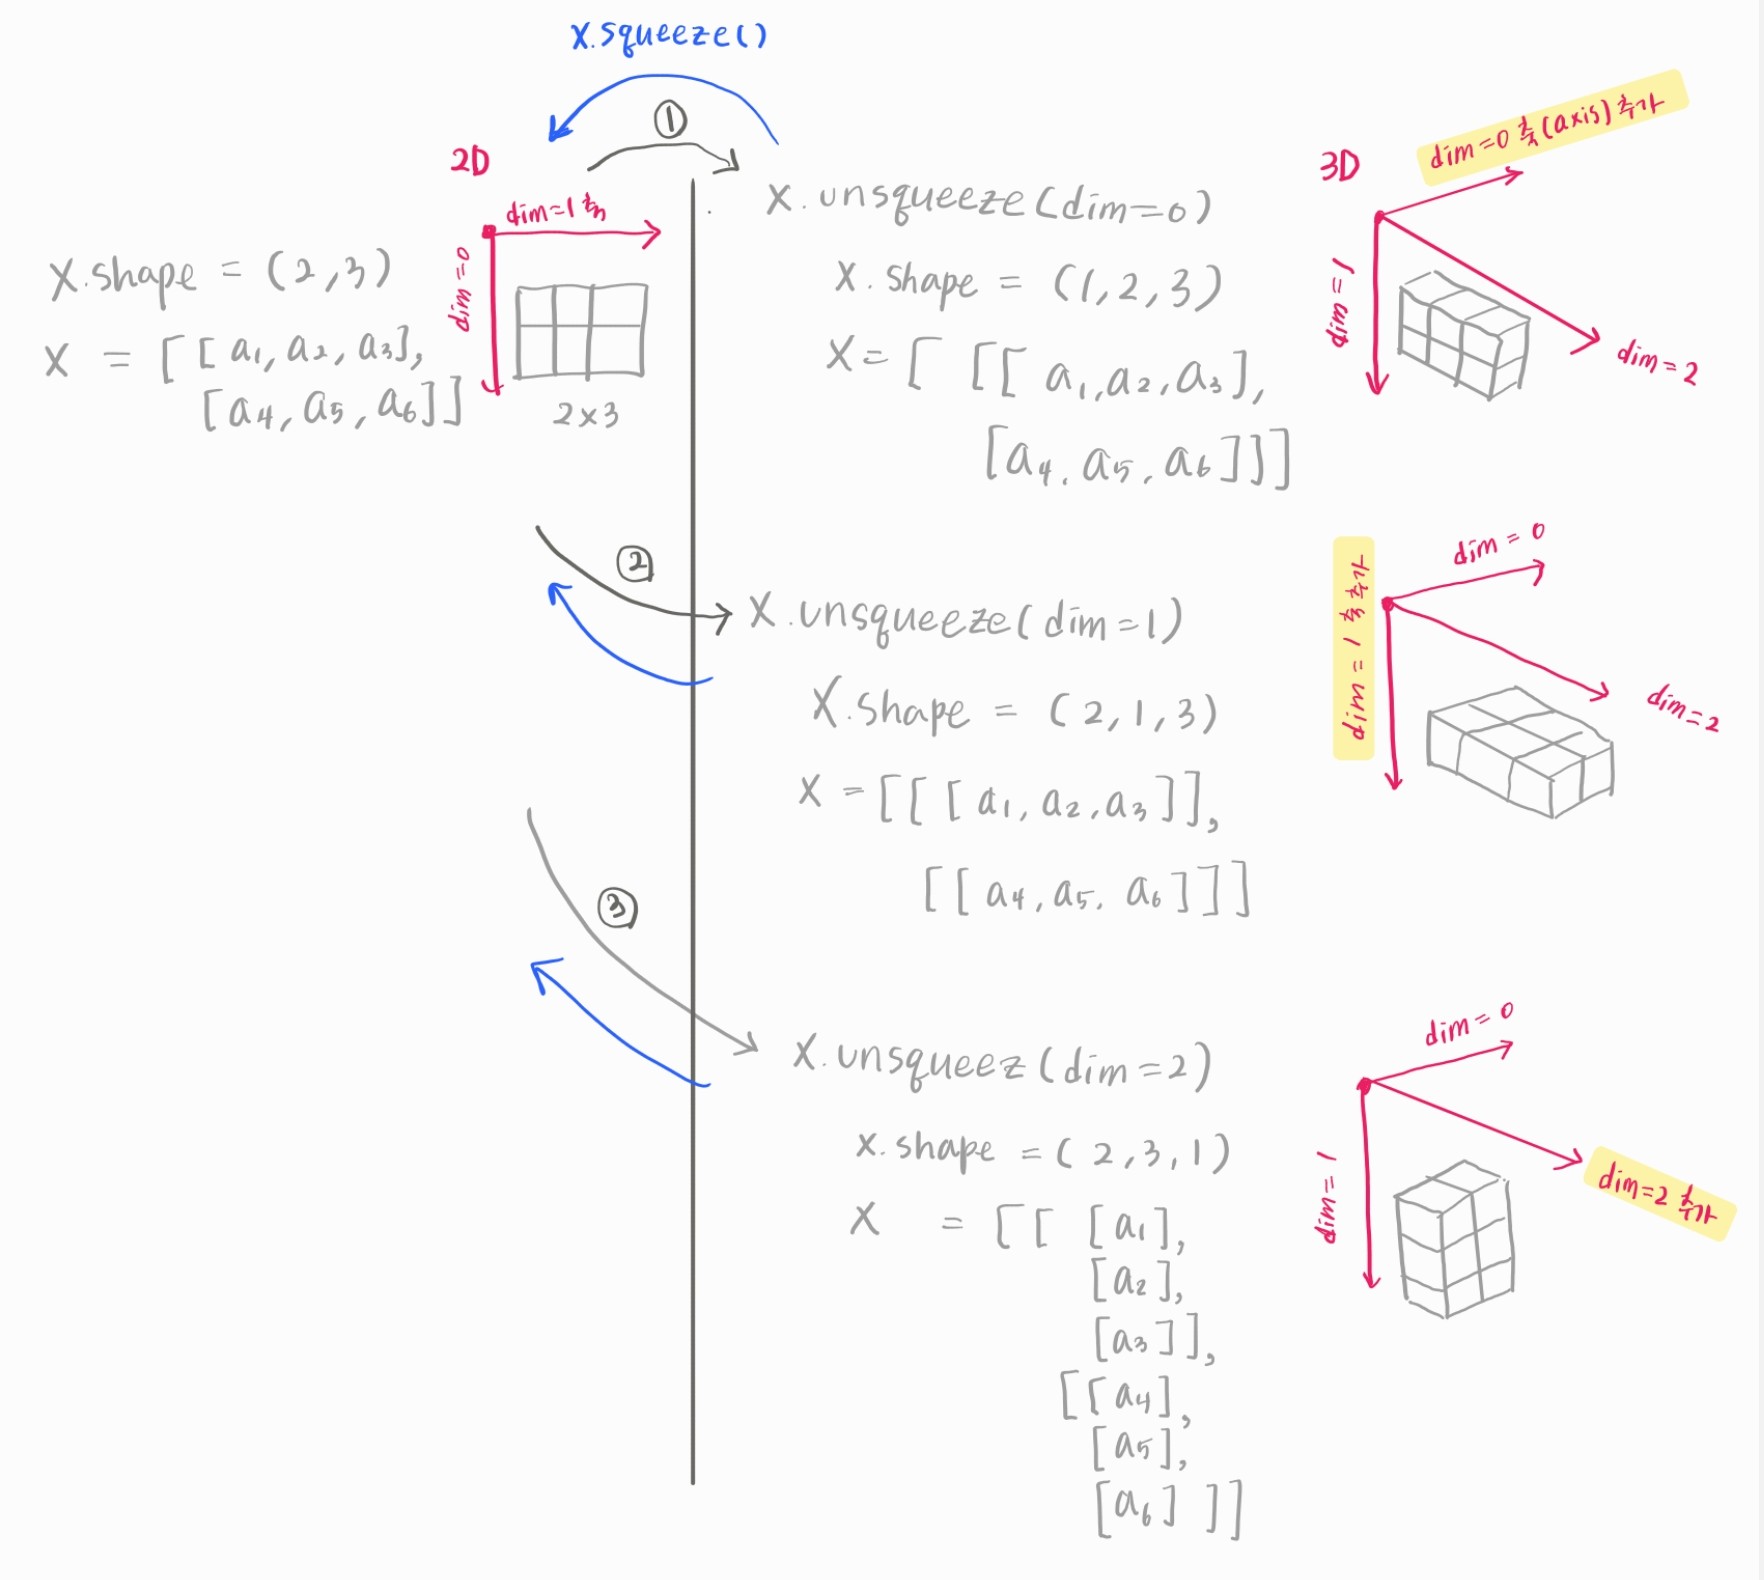 X.squeeze()
①
2D
dim=1 축
dim=0
X.shape = (2,3)
X = [[a1, a2, a3],
[a4, a5, a6]]
2x3
X.unsqueeze(dim=0)
X.shape = (1,2,3)
X= [ [[ a1, a2, a3],
[a4, a5, a6]]]
3D
dim=0 축(axis)추가
dim=1
dim=2
②
X.unsqueeze(dim=1)
X.shape = (2,1,3)
X =[[ [a1, a2, a3]],
[[a4, a5, a6]]]
dim=0
dim=1 축 추가
dim=2
③
X.unsqueez(dim=2)
X.shape =(2,3,1)
X = [[ [a1],
[a2],
[a3]],
[[a4],
[a5],
[a6] ]]
dim=0
dim=1
dim=2 축 추가